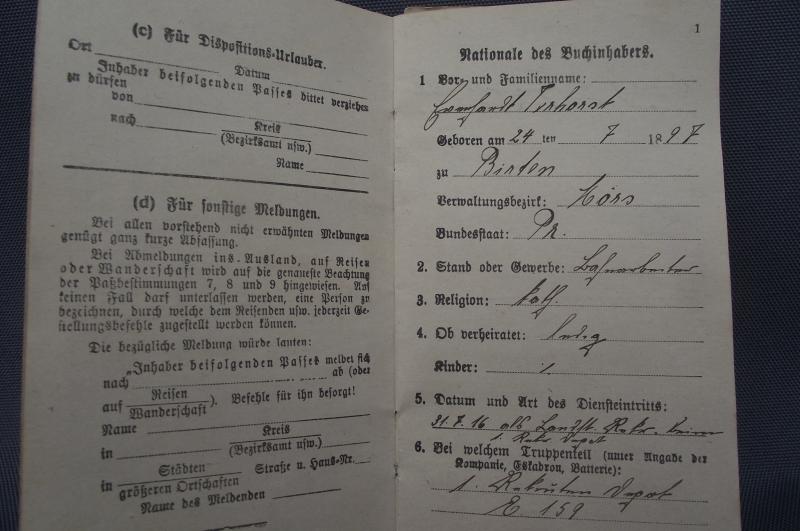 (c) Für Dispositions-Urlauber.
Ort Datum
Inhaber beifolgenden Passes bittet verziehen
zu dürfen
von
nach Kreis
(Bezirksamt usw.)
Name
(d) Für sonstige Meldungen.
Bei allen vorstehend nicht erwähnten Meldungen
genügt ganz kurze Abfassung.
Bei Abmeldungen ins Ausland, auf Reisen
oder Wanderschaft wird auf die genaueste Beachtung
der Paßbestimmungen 7, 8 und 9 hingewiesen. Auf
keinen Fall darf unterlassen werden, eine Person zu
bezeichnen, durch welche dem Reisenden usw. jederzeit Ge-
stellungsbefehle zugestellt werden können.
Die bezügliche Meldung würde lauten:
„Inhaber beifolgenden Passes meldet sich
nach ab (oder
auf Reisen
Wanderschaft). Befehle für ihn besorgt!
Name
in Kreis
(Bezirksamt usw.)
in Städten Straße u. Haus-Nr.
größeren Ortschaften
Name des Meldenden
1
Nationale des Buchinhabers.
1 Vor- und Familienname:
Everhardt Terhorst
Geboren am 24 ten 7 1897
zu Birten
Verwaltungsbezirk: Mörs
Bundesstaat: Pr.
2. Stand oder Gewerbe: Bahnarbeiter
3. Religion: kath.
4. Ob verheiratet: ledig
Kinder: /
5. Datum und Art des Diensteintritts:
31.7.16 als Landst. Rekr.
1. Rekr. Depot
6. Bei welchem Truppenteil (unter Angabe der
Kompanie, Eskadron, Batterie):
1. Rekruten Depot
E 159